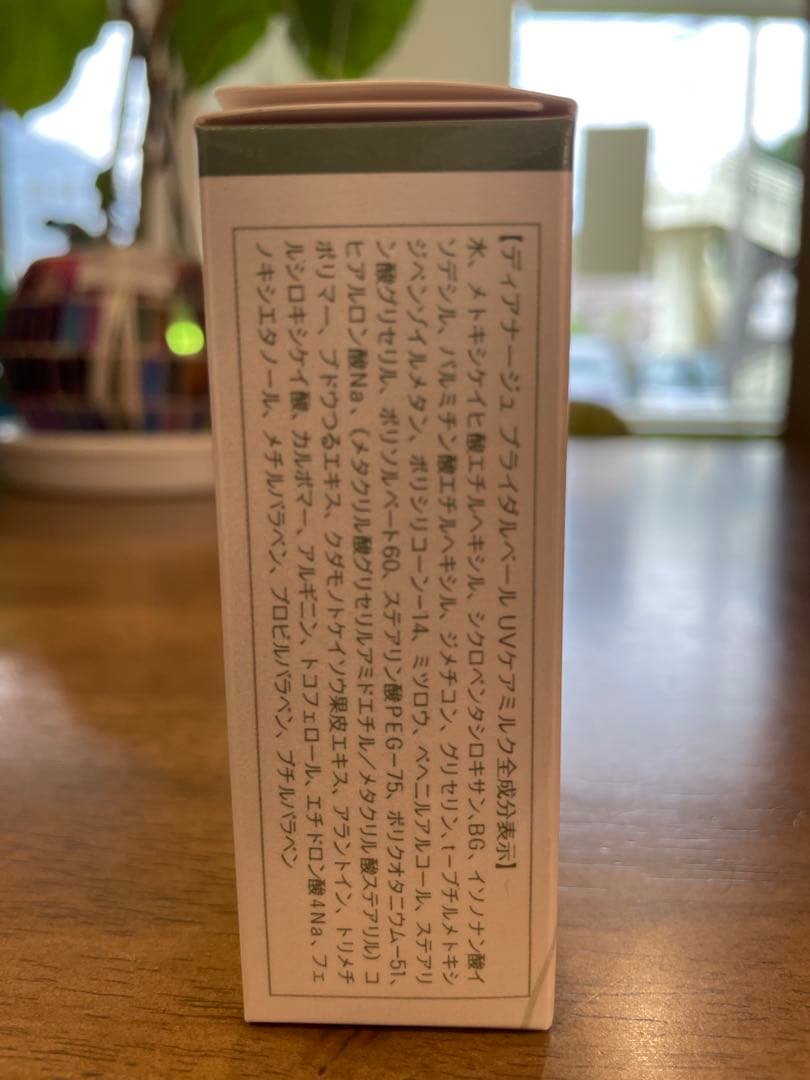 【ディアナージュ ブライダルベール UVケアミルク全成分表示】
水、メトキシケイヒ酸エチルヘキシル、シクロペンタシロキサン、BG、イソノナン酸イ
ソデシル、パルミチン酸エチルヘキシル、ジメチコン、グリセリン、t－ブチルメトキシ
ジベンゾイルメタン、ポリシリコーン－14、ミツロウ、ベヘニルアルコール、ステアリ
ン酸グリセリル、ポリソルベート60、ステアリン酸PEG－75、ポリクオタニウム－51、
ヒアルロン酸Na、（メタクリル酸グリセリルアミドエチル／メタクリル酸ステアリル）コ
ポリマー、ブドウつるエキス、クダモノトケイソウ果皮エキス、アラントイン、トリメチ
ルシロキシケイ酸、カルボマー、アルギニン、トコフェロール、エチドロン酸4Na、フェ
ノキシエタノール、メチルパラベン、プロピルパラベン、ブチルパラベン